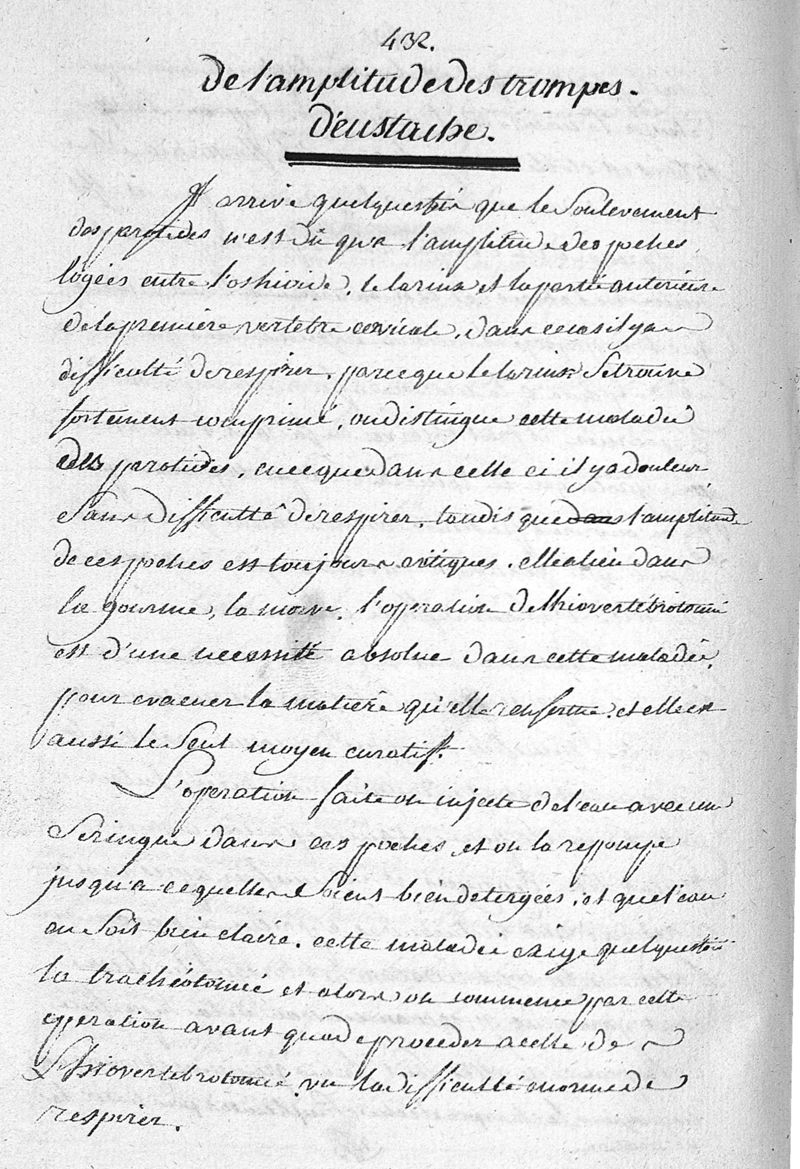 432.
de l'amplitude des trompes.
D'eustache.
Il arrive quelquesfois que le Soulevement
des parotides n'est dû qu'a l'amplitude des poches,
logées entre l'os hioide, le larinx et la partie anterieure
de la premiere vertebre cervicale, dans ce cas il y a
difficulté de respirer, parceque le larinx Se trouve
fortement comprimé, on distingue cette maladie
des parotides, en ce que dans celle ci il y a douleur
Sans difficulté de respirer, tandis que dans l'amplitude
de ces poches est toujours critiques. elle a lieu dans
la gourme, la morve. l'operation de l'hiovertébrotomie
est d'une necessité absolue dans cette maladie,
pour evacuer la matiere qu'elle renferme. et elle est
aussi le Seul moyen curatif.
L'operation faite on injecte de l'eau avec un
Seringue dans ces poches, et on la repompe
jusqu'a ce quelles Soient bien detergées, et que l'eau
en Soit bien claire. cette maladie exige quelquesfois
la trachéotomie et alors on commence par cette
operation avant que de proceder a celle de
L'hiovertebrotomie. vu la difficulté enorme de
respirer.